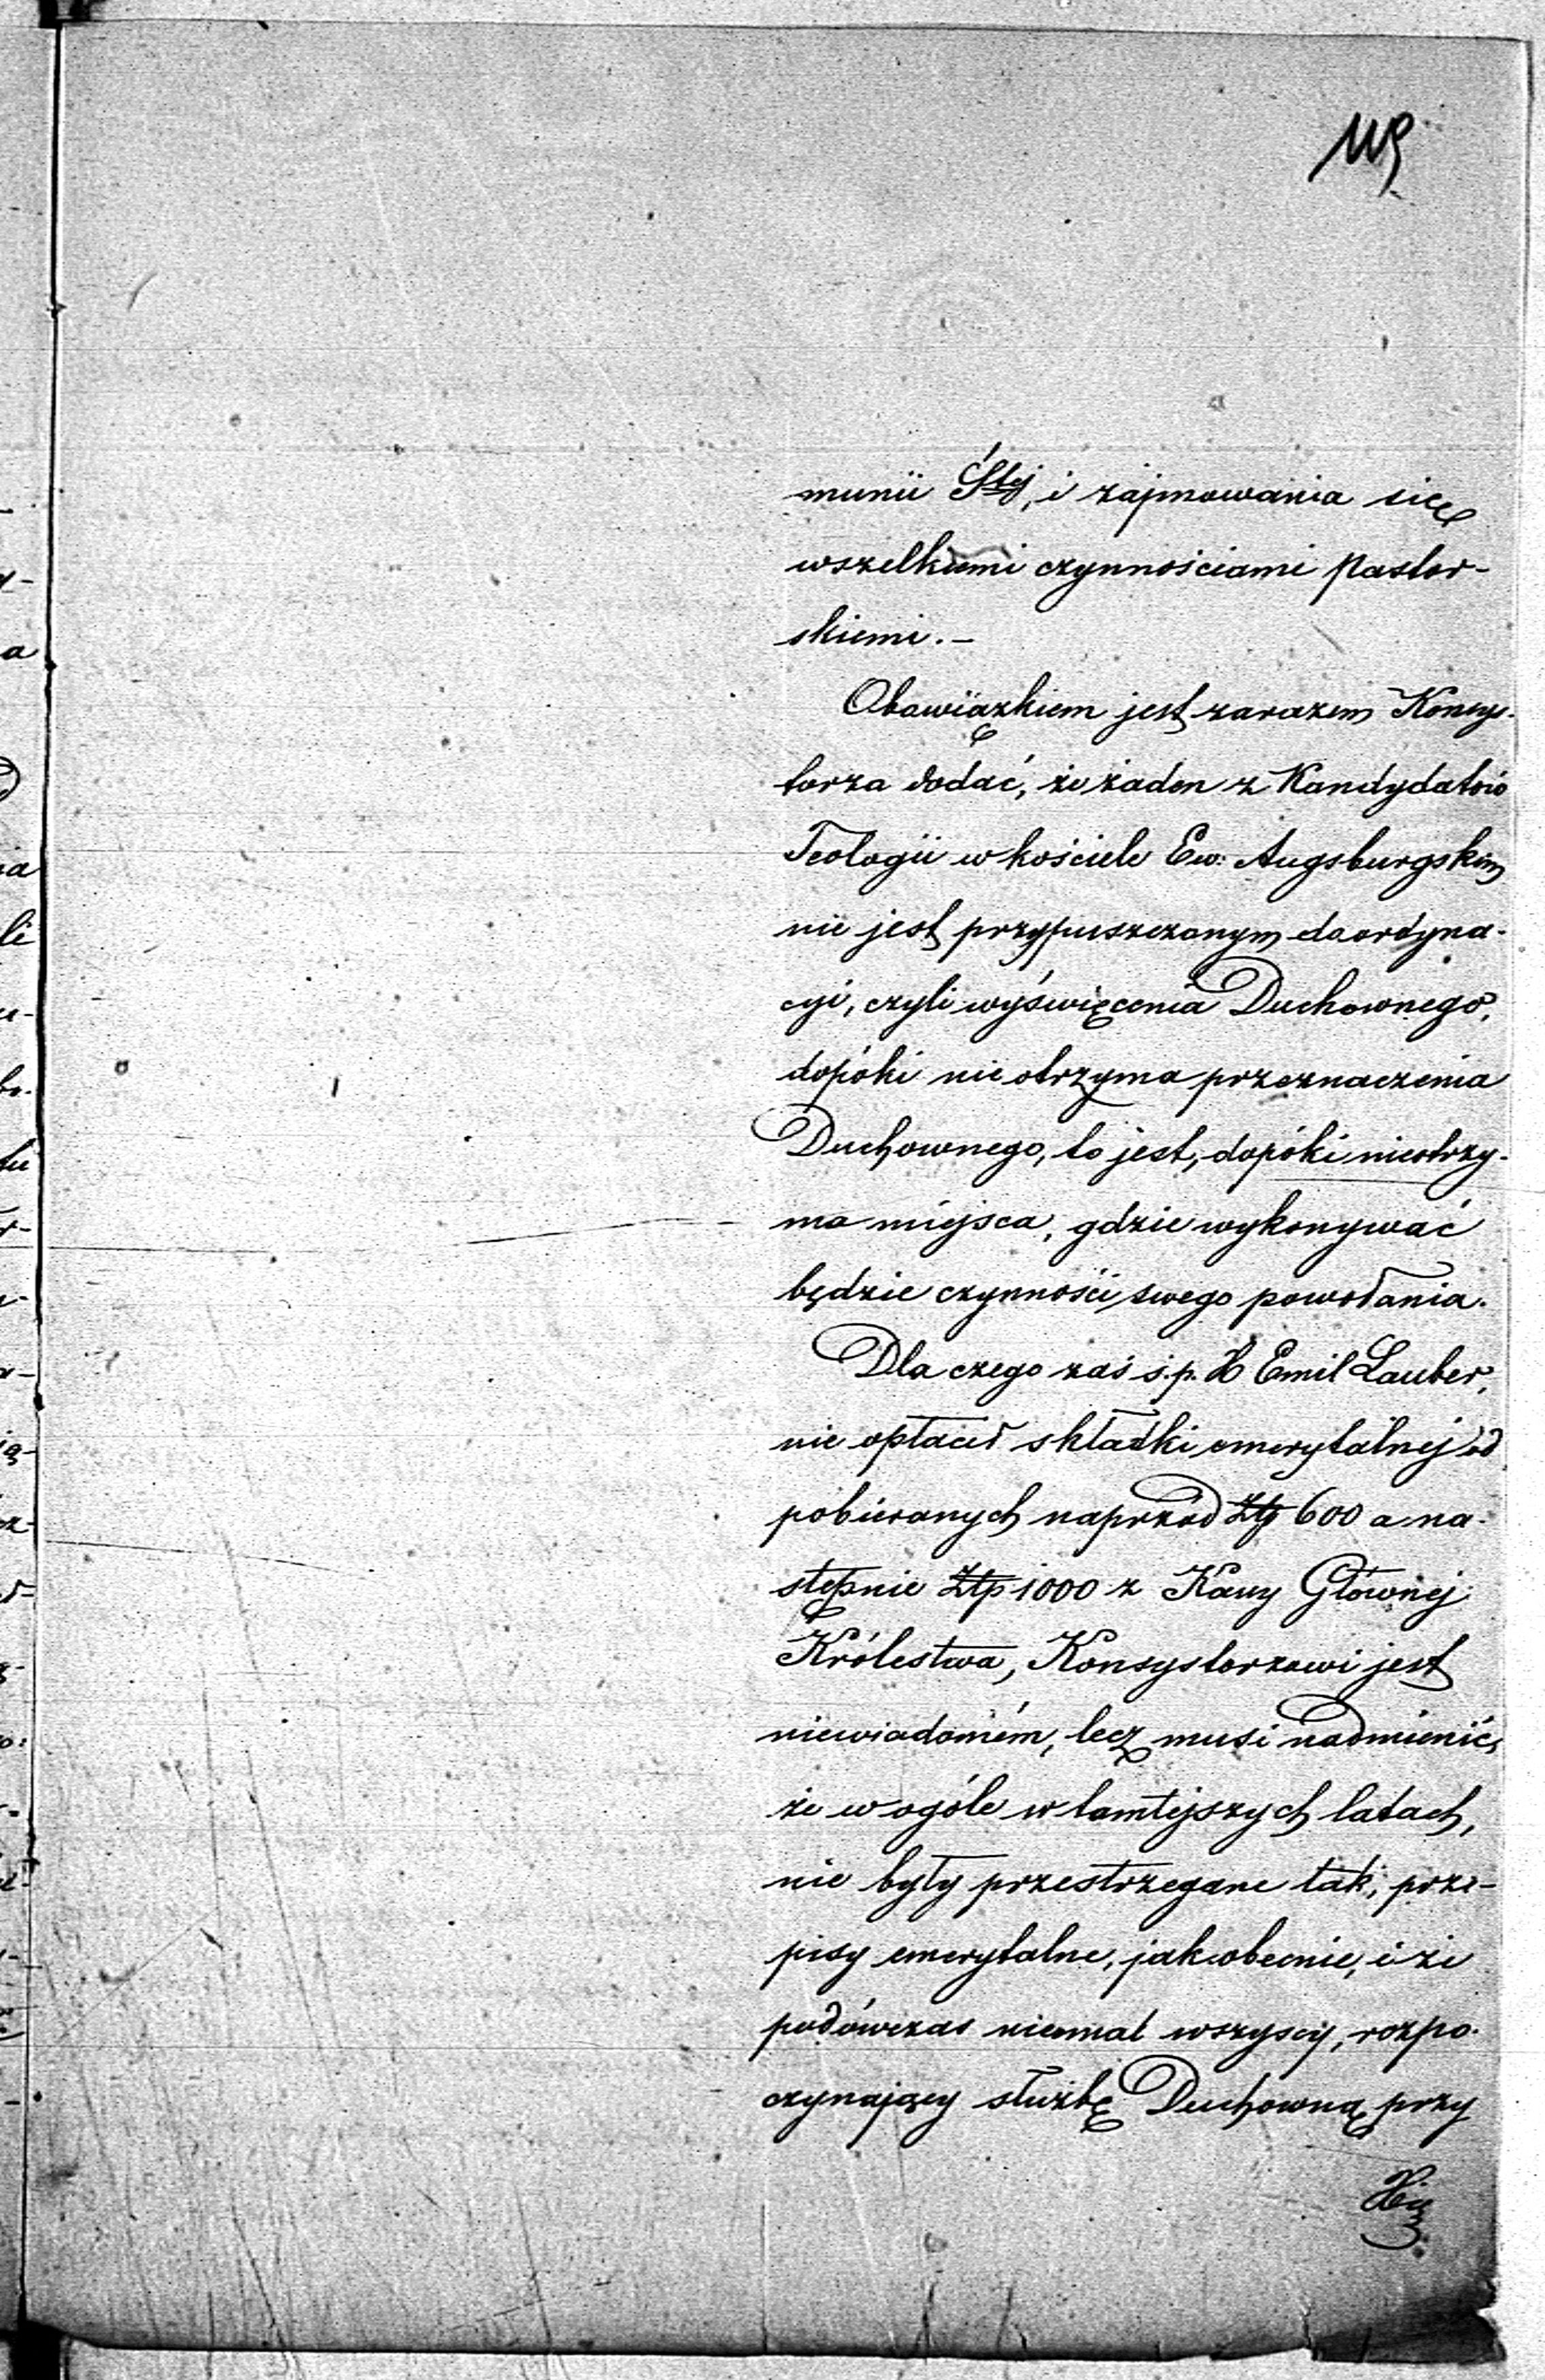 munii Śtej, i zajmowania się
wszelkiemi czynnościami Pastor-
skiemi.-
Obowiązkiem jest zarazem Konsys-
torza dodać, że żaden z Kandydatów
Teologii w kościele Ew: Augsburgskim
nie jest przypuszczonym do ordyna-
cyi, czyli wyświęcenia Duchownego,
dopóki nie otrzyma przeznaczenia
Duchownego, to jest, dopóki nieotrzy-
ma miejsca, gdzie wykonywać
będzie czynności swego powołania.
Dla czego zaś ś.p. X Emil Lauber,
nie opłacał składki emerytalnej od
pobieranych naprzód Złp 600 a na-
stępnie Złp 1000 z Kassy Głównej
Królestwa, Konsystorzowi jest
niewiadomém, lecz musi nadmienić,
że w ogóle w tamtejszych latach,
nie były przestrzegane tak, prze-
pisy emerytalne, jak obecnie, i że
podówczas niemal wszyscy, rozpo-
czynający służbę Duchowną przy